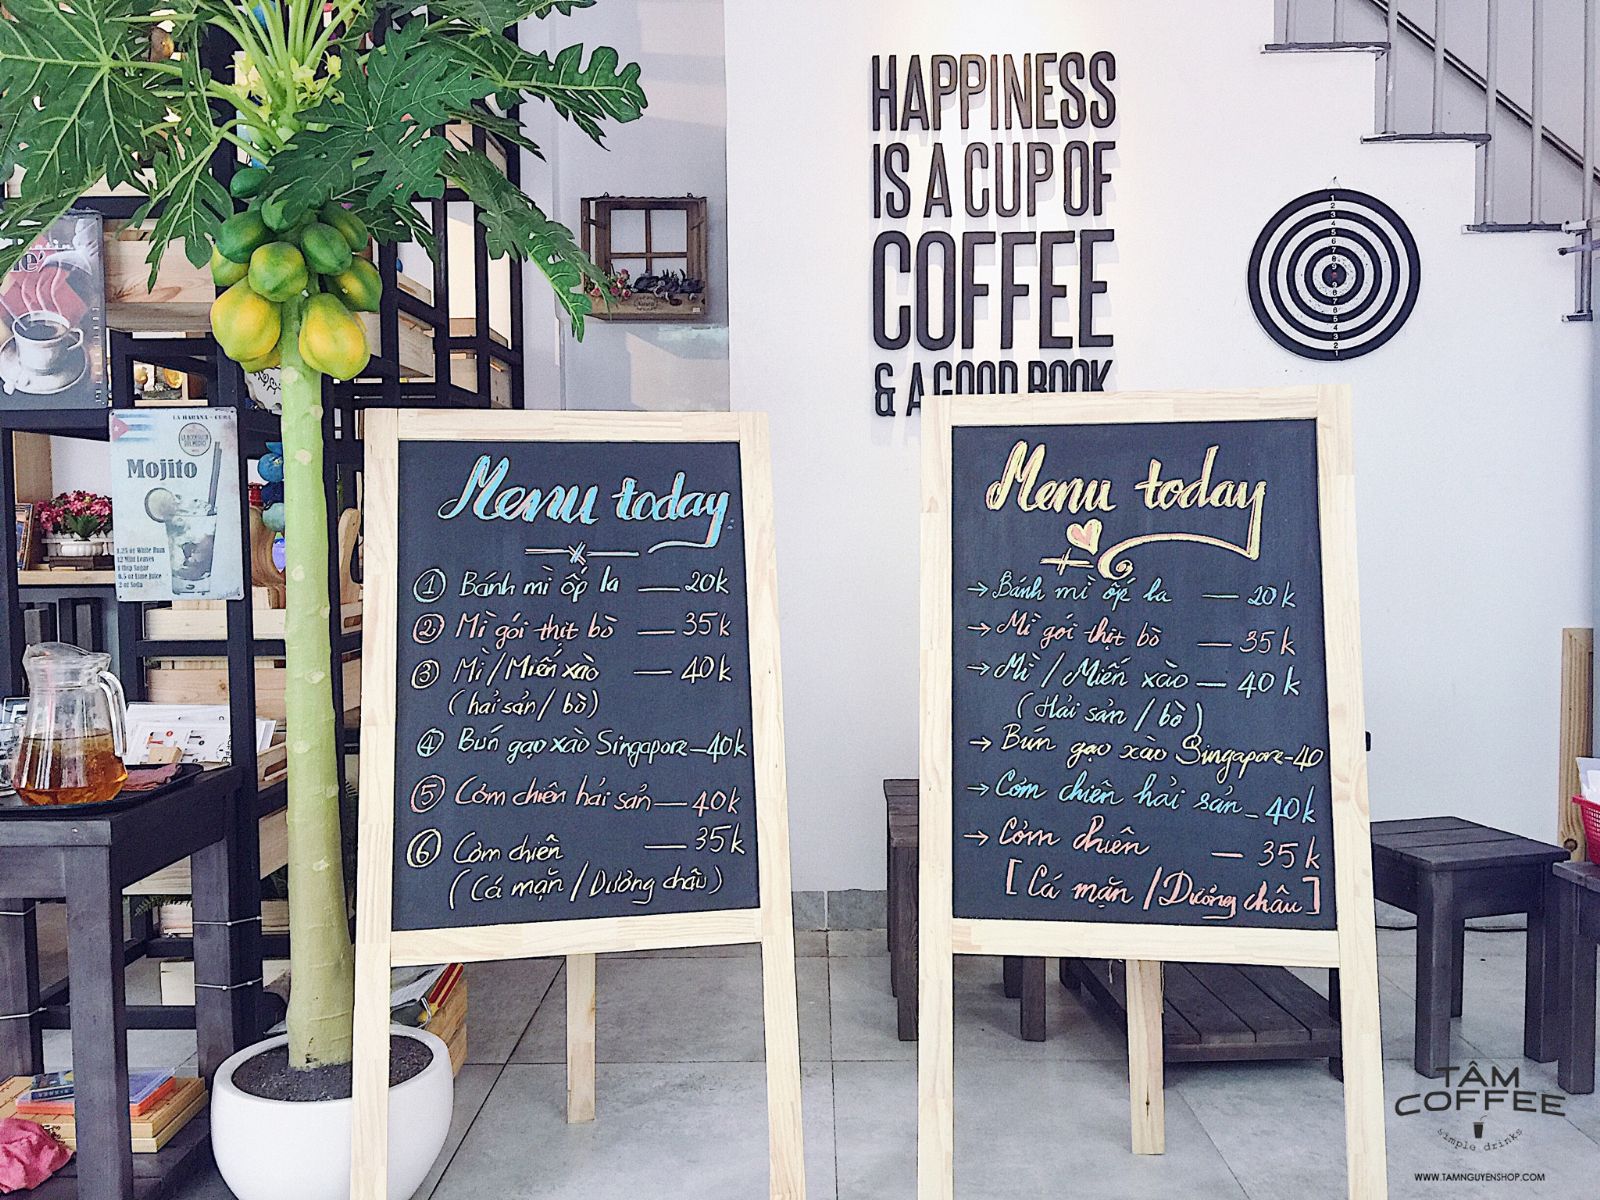 HAPPINESS
IS A CUP OF
COFFEE
& A GOOD BOOK
LA HABANA - CUBA
Mojito
1.25 oz White Rum
12 Mint Leaves
1 tbsp Sugar
0.5 oz Lime Juice
2 oz Soda
Menu today
① Bánh mì ốp la — 20k
② Mì gói thịt bò — 35k
③ Mì / Miến xào — 40k
(hải sản / bò)
④ Bún gạo xào Singapore — 40k
⑤ Cơm chiên hải sản — 40k
⑥ Cơm chiên — 35k
(Cá mặn / Dưỡng châu)
Menu today
→ Bánh mì ốp la — 20k
→ Mì gói thịt bò — 35k
→ Mì / Miến xào — 40k
(Hải sản / bò)
→ Bún gạo xào Singapore - 40
→ Cơm chiên hải sản - 40k
→ Cơm chiên — 35k
[Cá mặn / Dưỡng châu]
TÂM
COFFEE
simple drinks
WWW.TAMNGUYENSHOP.COM